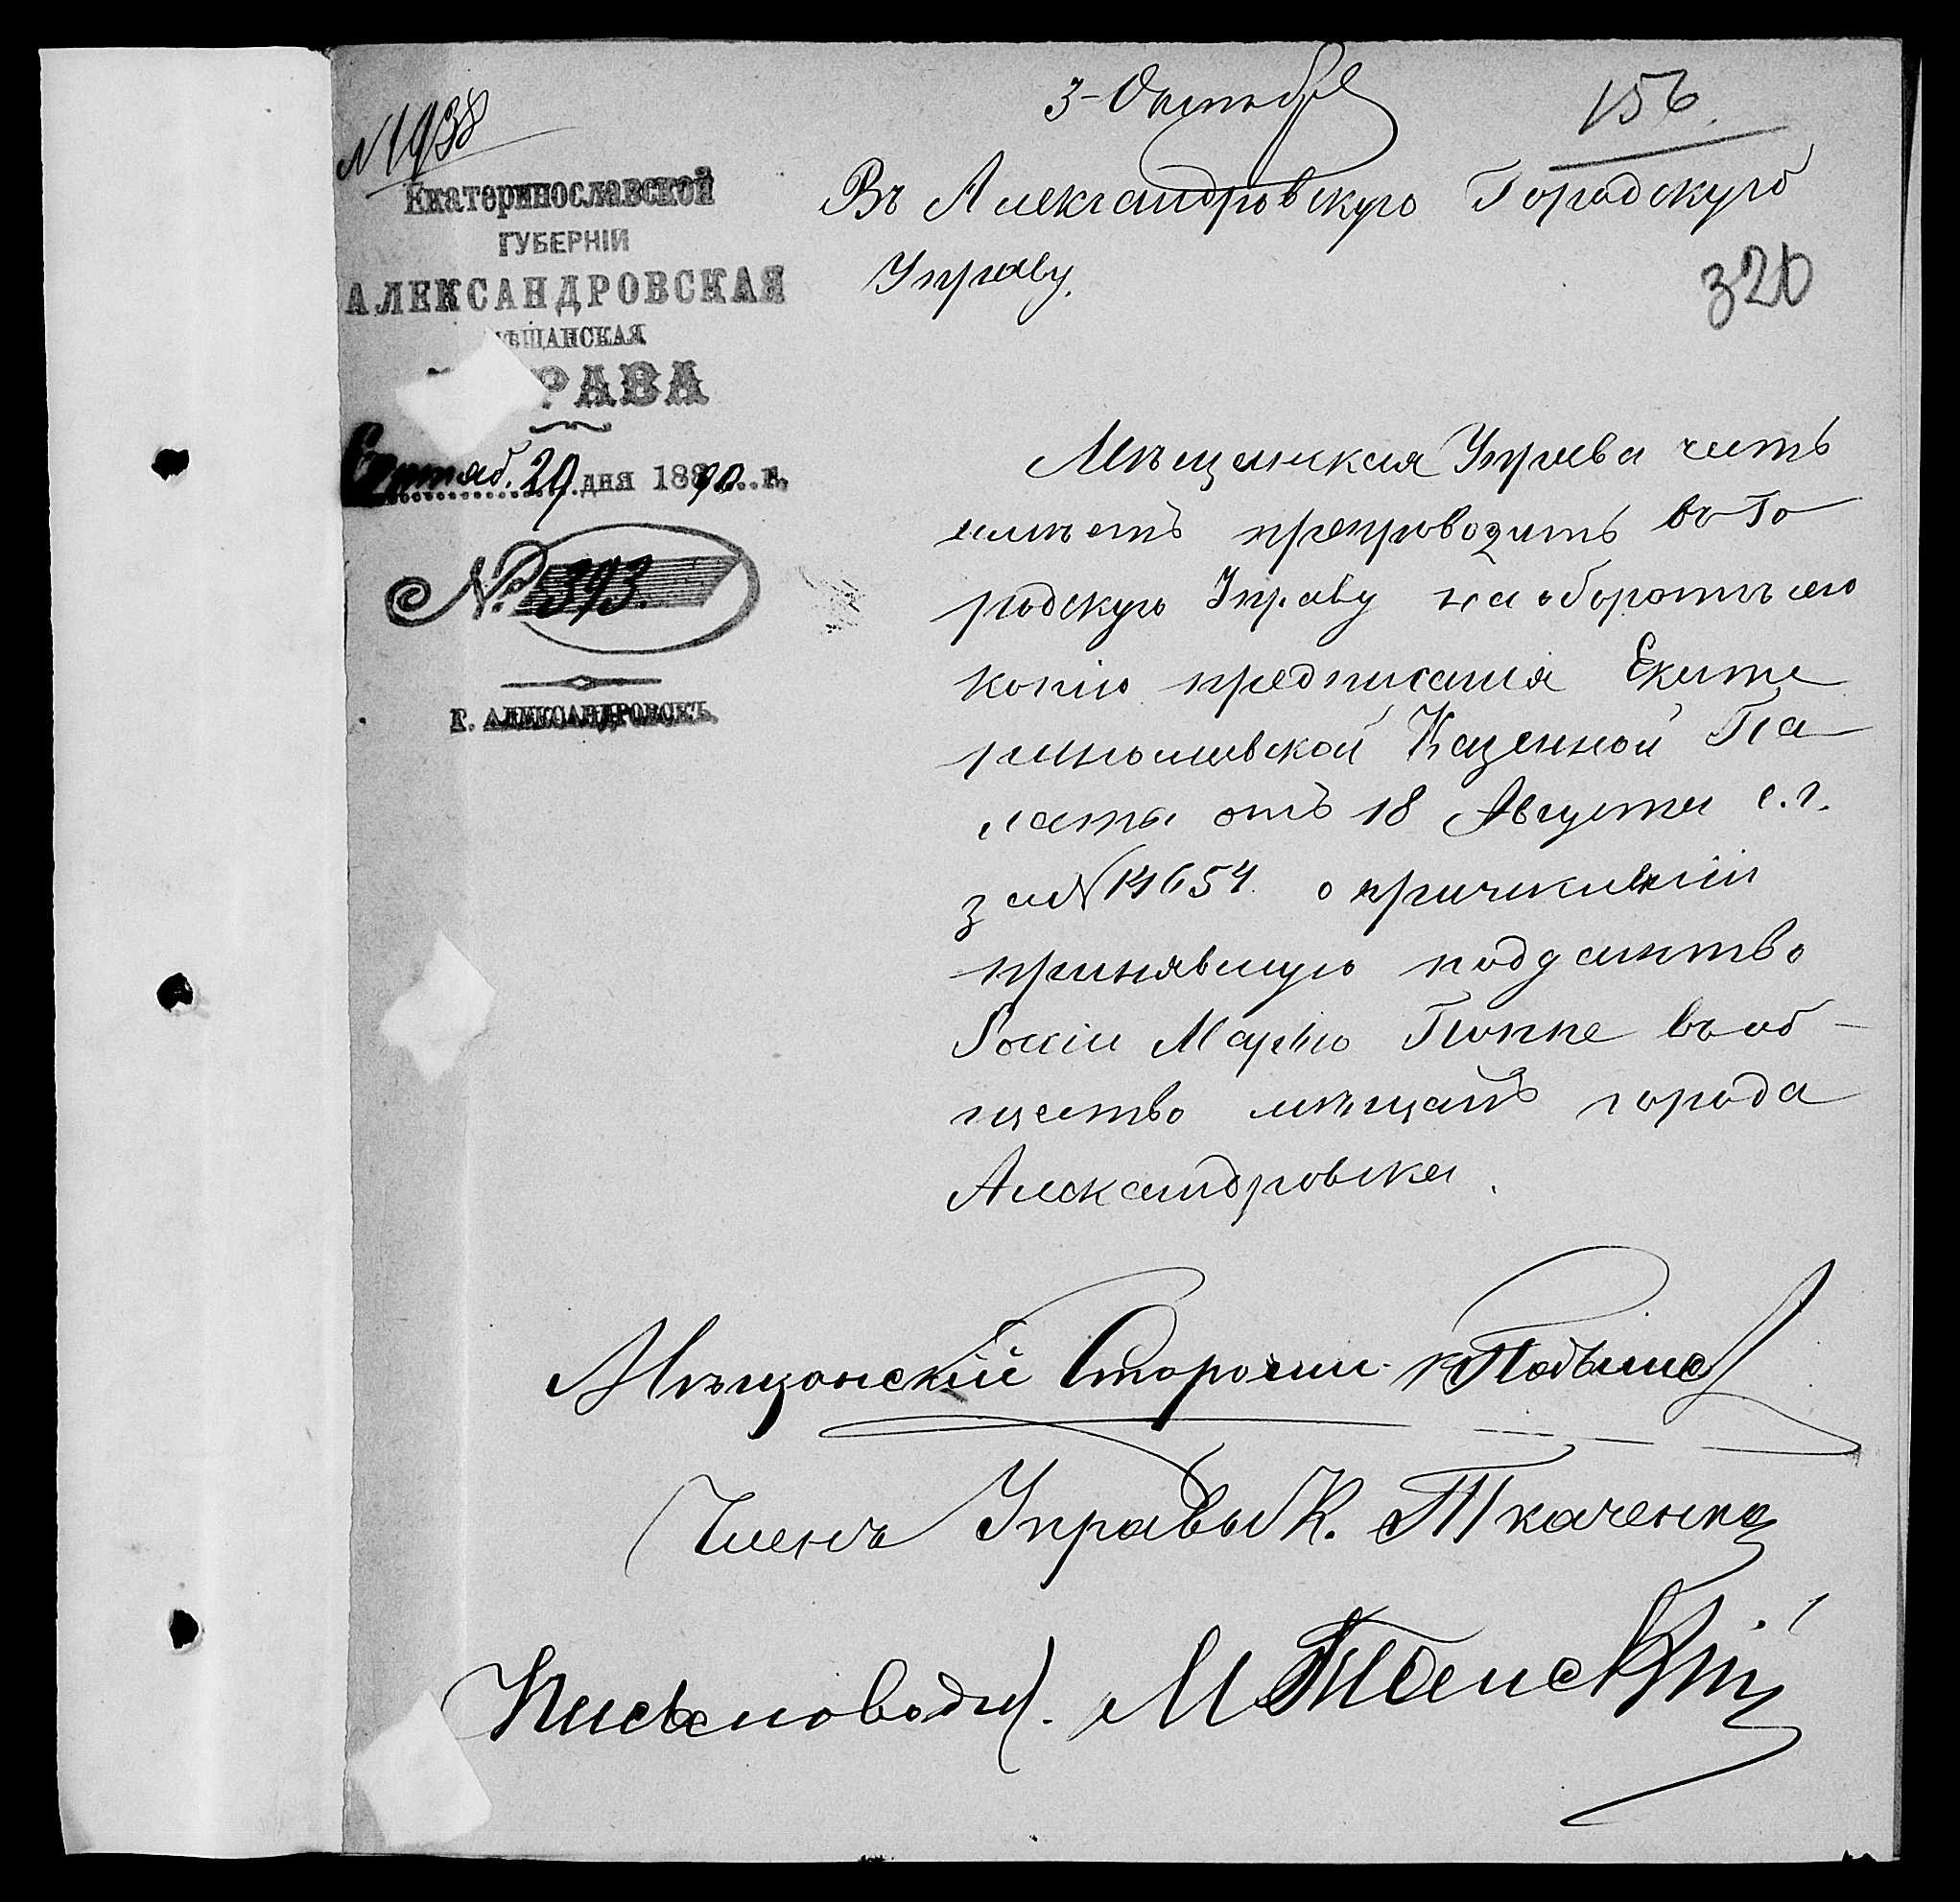 3 Октября
156.
N 1938
Екатеринославской
ГУБЕРНІИ
АЛЕКСАНДРОВСКАЯ
МѢЩАНСКАЯ
УПРАВА
Сентяб. 29 дня 1890 г.
№ 593.
г. АЛЕКСАНДРОВСКЪ.
Въ Александровскую Городскую
Управу.
320
Мѣщанская Управа честь
имѣетъ препроводить въ Го
родскую Управу на оборотѣ сего
копію предписанія Екате
ринославской Казенной Па-
латы отъ 18 Августа с.г.
за N 14654 о причисленіи
принявшую подданство
Россіи Марію Поппе въ об-
щество мѣщанъ города
Александровска.
Мѣщанскій Старости
Членъ Управы К. Ткаченко
Письмовод. М.